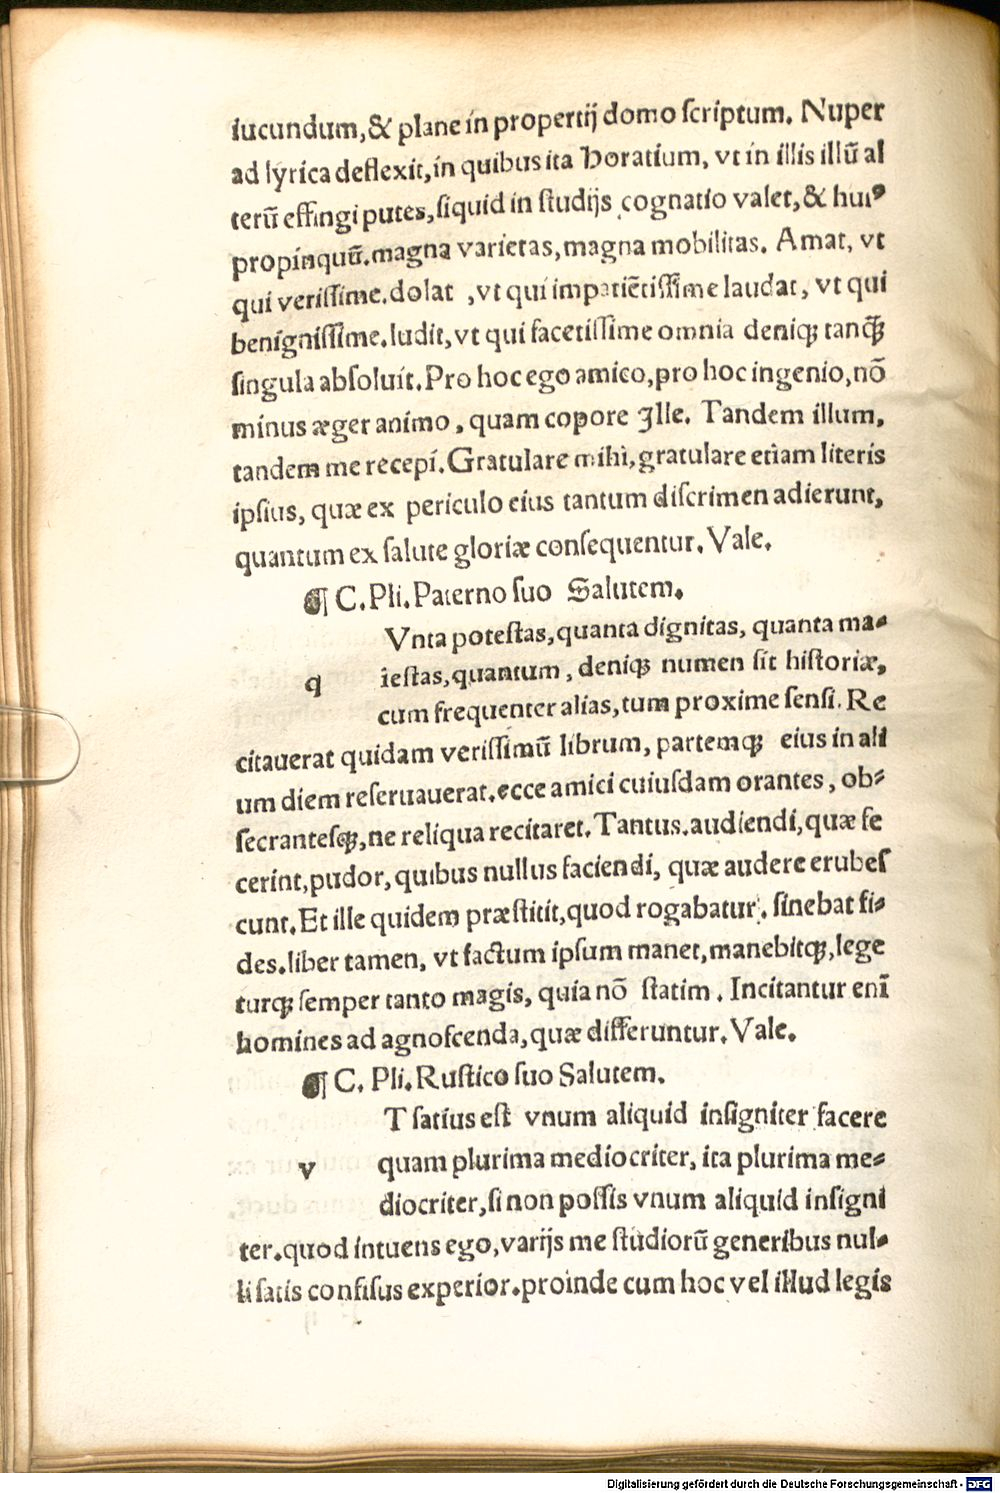 iucundum,& plane in propertij domo ſcriptum. Nuper
ad lyrica deflexit,in quibus ita Horatium, vt in illis illū al
terū effingi putes,ſiquid in ſtudijs cognatio valet,& huiꝰ
propinquū.magna varietas,magna mobilitas. Amat, vt
qui veriſſime.dolat ,vt qui impatiētiſſime laudat, vt qui
benigniſſime.ludit,vt qui facetiſſime omnia deniqꝫ tanqꝫ̄
ſingula abſoluit.Pro hoc ego amico,pro hoc ingenio,nō
minus æger animo, quam copore Ille. Tandem illum,
tandem me recepi.Gratulare mihi,gratulare etiam literis
ipſius, quæ ex periculo eius tantum diſcrimen adierunt,
quantum ex ſalute gloriæ conſequentur. Vale.
¶ C.Pli.Paterno ſuo Salutem.
Vnta poteſtas,quanta dignitas, quanta ma⸗
q ieſtas,quantum, deniqꝫ numen ſit hiſtoriæ,
cum frequenter alias,tum proxime ſenſi. Re
citauerat quidam veriſſimū librum, partemqꝫ eius in ali
um diem reſeruauerat.ecce amici cuiuſdam orantes, ob⸗
ſecranteſqꝫ,ne reliqua recitaret.Tantus.audiendi,quæ fe
cerint,pudor, quibus nullus faciendi, quæ audere erubeſ
cunt.Et ille quidem præſtitit,quod rogabatur. ſinebat fi⸗
des.liber tamen, vt factum ipſum manet,manebitqꝫ,lege
turqꝫ ſemper tanto magis, quia nō ſtatim. Incitantur enī
homines ad agnoſcenda,quæ differuntur. Vale.
¶ C. Pli.Ruſtico ſuo Salutem.
T ſatius eſt vnum aliquid inſigniter facere
v quam plurima mediocriter, ita plurima me⸗
diocriter,ſi non poſſis vnum aliquid inſigni
ter.quod intuens ego,varijs me ſtudiorū generibus nul⸗
li ſatis confiſus experior.proinde cum hoc vel illud legis
Digitalisierung gefördert durch die Deutsche Forschungsgemeinschaft - DFG